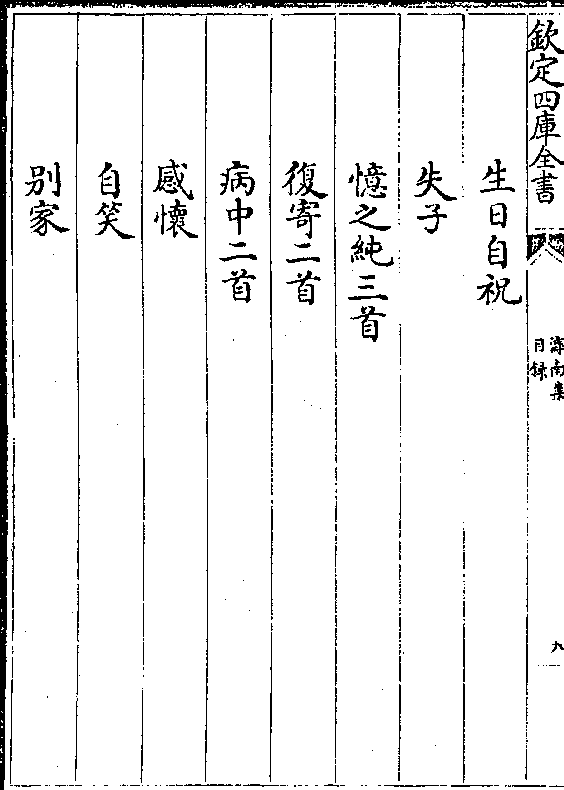 欽定四庫全書
滹南集
目録
九
生日自祝
失子
憶之純三首
復寄二首
病中二首
感懷
自笑
别家